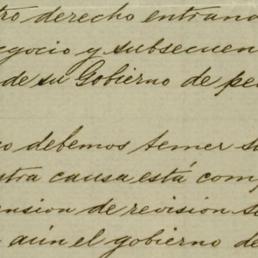 tro derecho entran
egocio y subsecuen
de su Gobierno de pe
o debemos temer s
stra causa está com
ension de revision s
aún el gobierno de